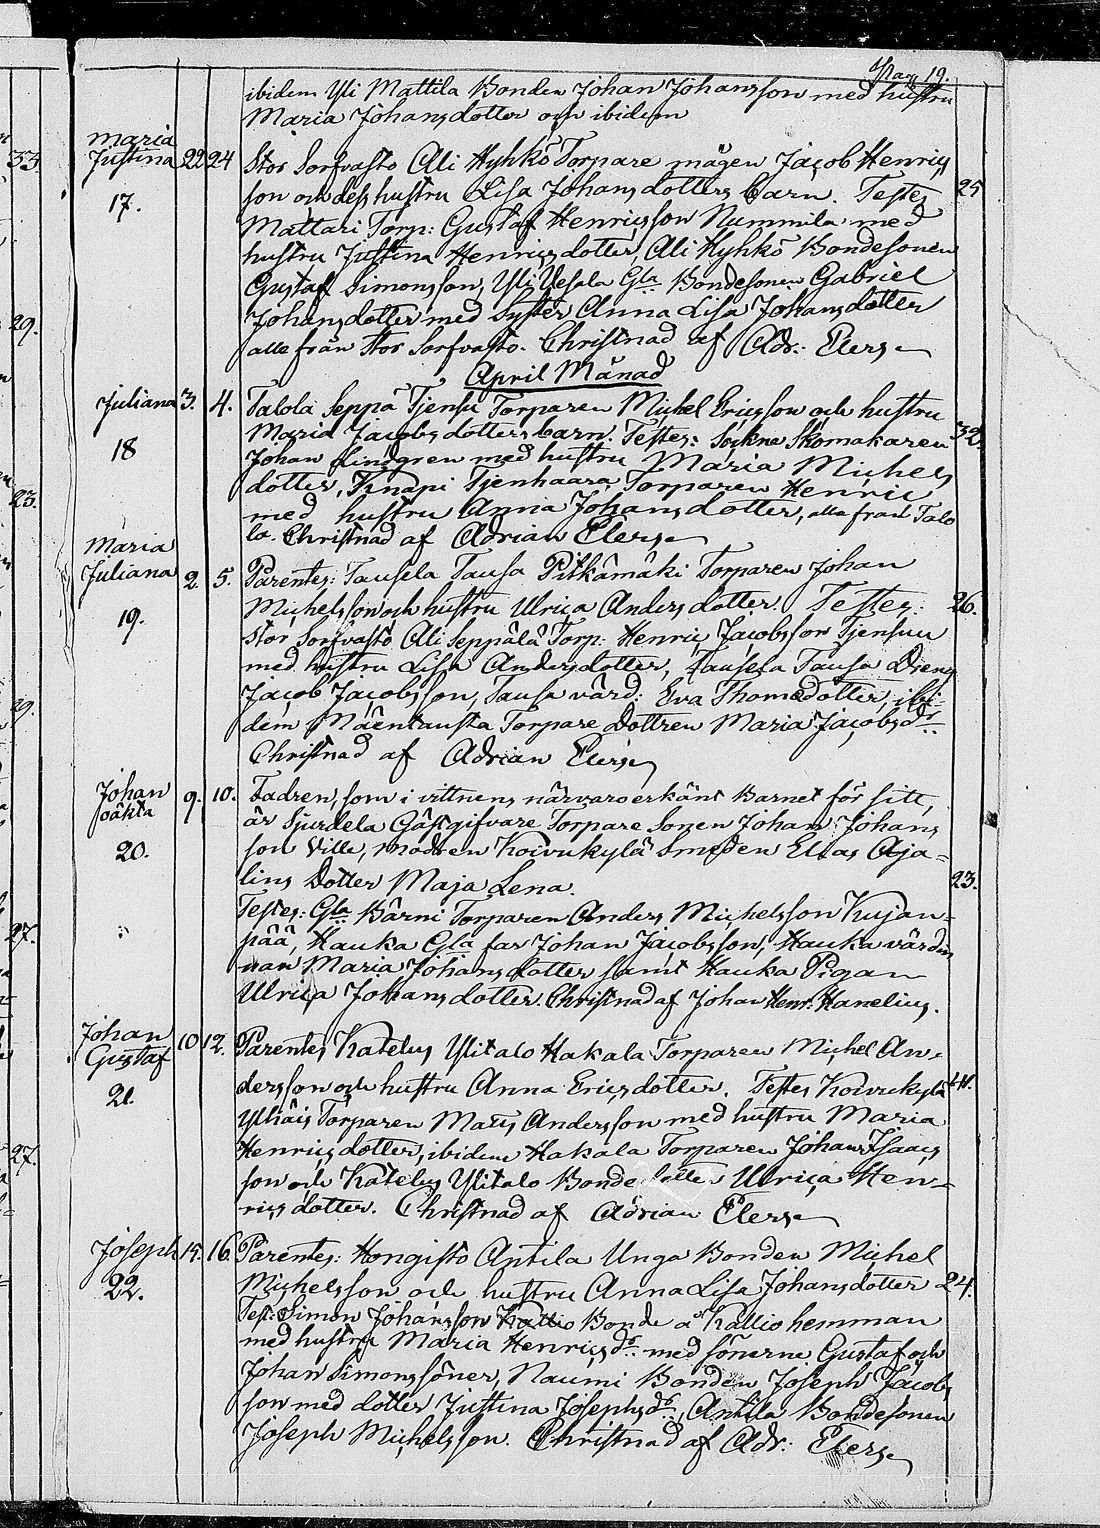 Pag. 19.
ibidem Yli Mattila Bonden Johan Johansson med hustru
Maria Johansdotter och ibidem
Maria
Justina 22 24 Stor Sorfvasto Ali Hyhkö Torpare mågen Jacob Henrics
17. son och dess hustru Lisa Johansdotters barn. Testes 25
Mattari Torp: Gustaf Henricsson Nummila med
hustru Justina Henricsdotter, Ali Hyhkö Bondesonen
Gustaf Simonsson, Yli Uesala Gla Bondesonen Gabriel
Johansdotter med Syster Anna Lisa Johansdotter
alle från Stor Sorfvasto. Christnad af Adr: Elers
April Månad
Juliana 3. 4. Talola Seppä Tjensu Torparen Michel Ericsson och hustru
Maria Jacobsdotters barn. Testes: Sockne Skomakaren 32.
18 Johan Lindgren med hustru Maria Michels
dotter, Knapi Tjenhaara Torparen Henric
med hustru Anna Johansdotter, alla från Talo
la. Christnad af Adrian Elers
Maria
Juliana 2. 5. Parentes: Tausela Tausa Pitkämäki Torparen Johan
19. Michelsson och hustru Ulrica Andersdotter. Testes: 26.
Stor Sorfvasto Ali Seppälä Torp: Henric Jacobsson Tjensuu
med hustru Lisa Andersdotter, Tausela Tausa Dreng
Jacob Jacobsson, Tausa värd: Eva Thomedotter, ibi-
dem Mäentausta Torpare Dottren Maria Jacobsdr
Christnad af Adrian Elers
Johan
oäkta 9. 10. Fadren, som i vittnens närvaro erkänt Barnet för sitt,
är Sjurdela Gästgifvare Torpare Sonen Johan Johans
20. son Ville, modren Koivukylä Smeden Elias Aja-
lins Dotter Maja Lena. 23.
Testes: Gla Bärni Torparen Anders Michelsson Kujan-
pää, Hauka Gla far Johan Jacobsson, Hauka värdin
nan Maria Johansdotter samt Hauka Pigan
Ulrica Johansdotter. Christnad af Johan Henr. Hanelius.
Johan
Gustaf 10 12. Parentes Katelus Ylitalo Hakala Torparen Michel An-
21. dersson och hustru Anna Ericsdotter. Testes Koivukylä
Ylhäis Torparen Matts Andersson med hustru Maria
Henricsdotter, ibidem Hakala Torparen Johan Isaacs
son och Katelus Ylitalo Bonde Ulrica Hen-
ricsdotter. Christnad af Adrian Elers
Joseph 15. 16. Parentes: Hongisto Antila Unga Bonden Michel
22. Michelsson och hustru Anna Lisa Johansdotter 24.
Test: Simon Johansson Kallio Bonde å Kallio hemman
med hustru Maria Henricsdr med sönerne Gustaf och
Johan Simonssöner, Naumi Bonden Joseph Jacobs
son med dotter Justina Josephsdr, Antila Bondesonen
Joseph Michelsson. Christnad af Adr: Elers